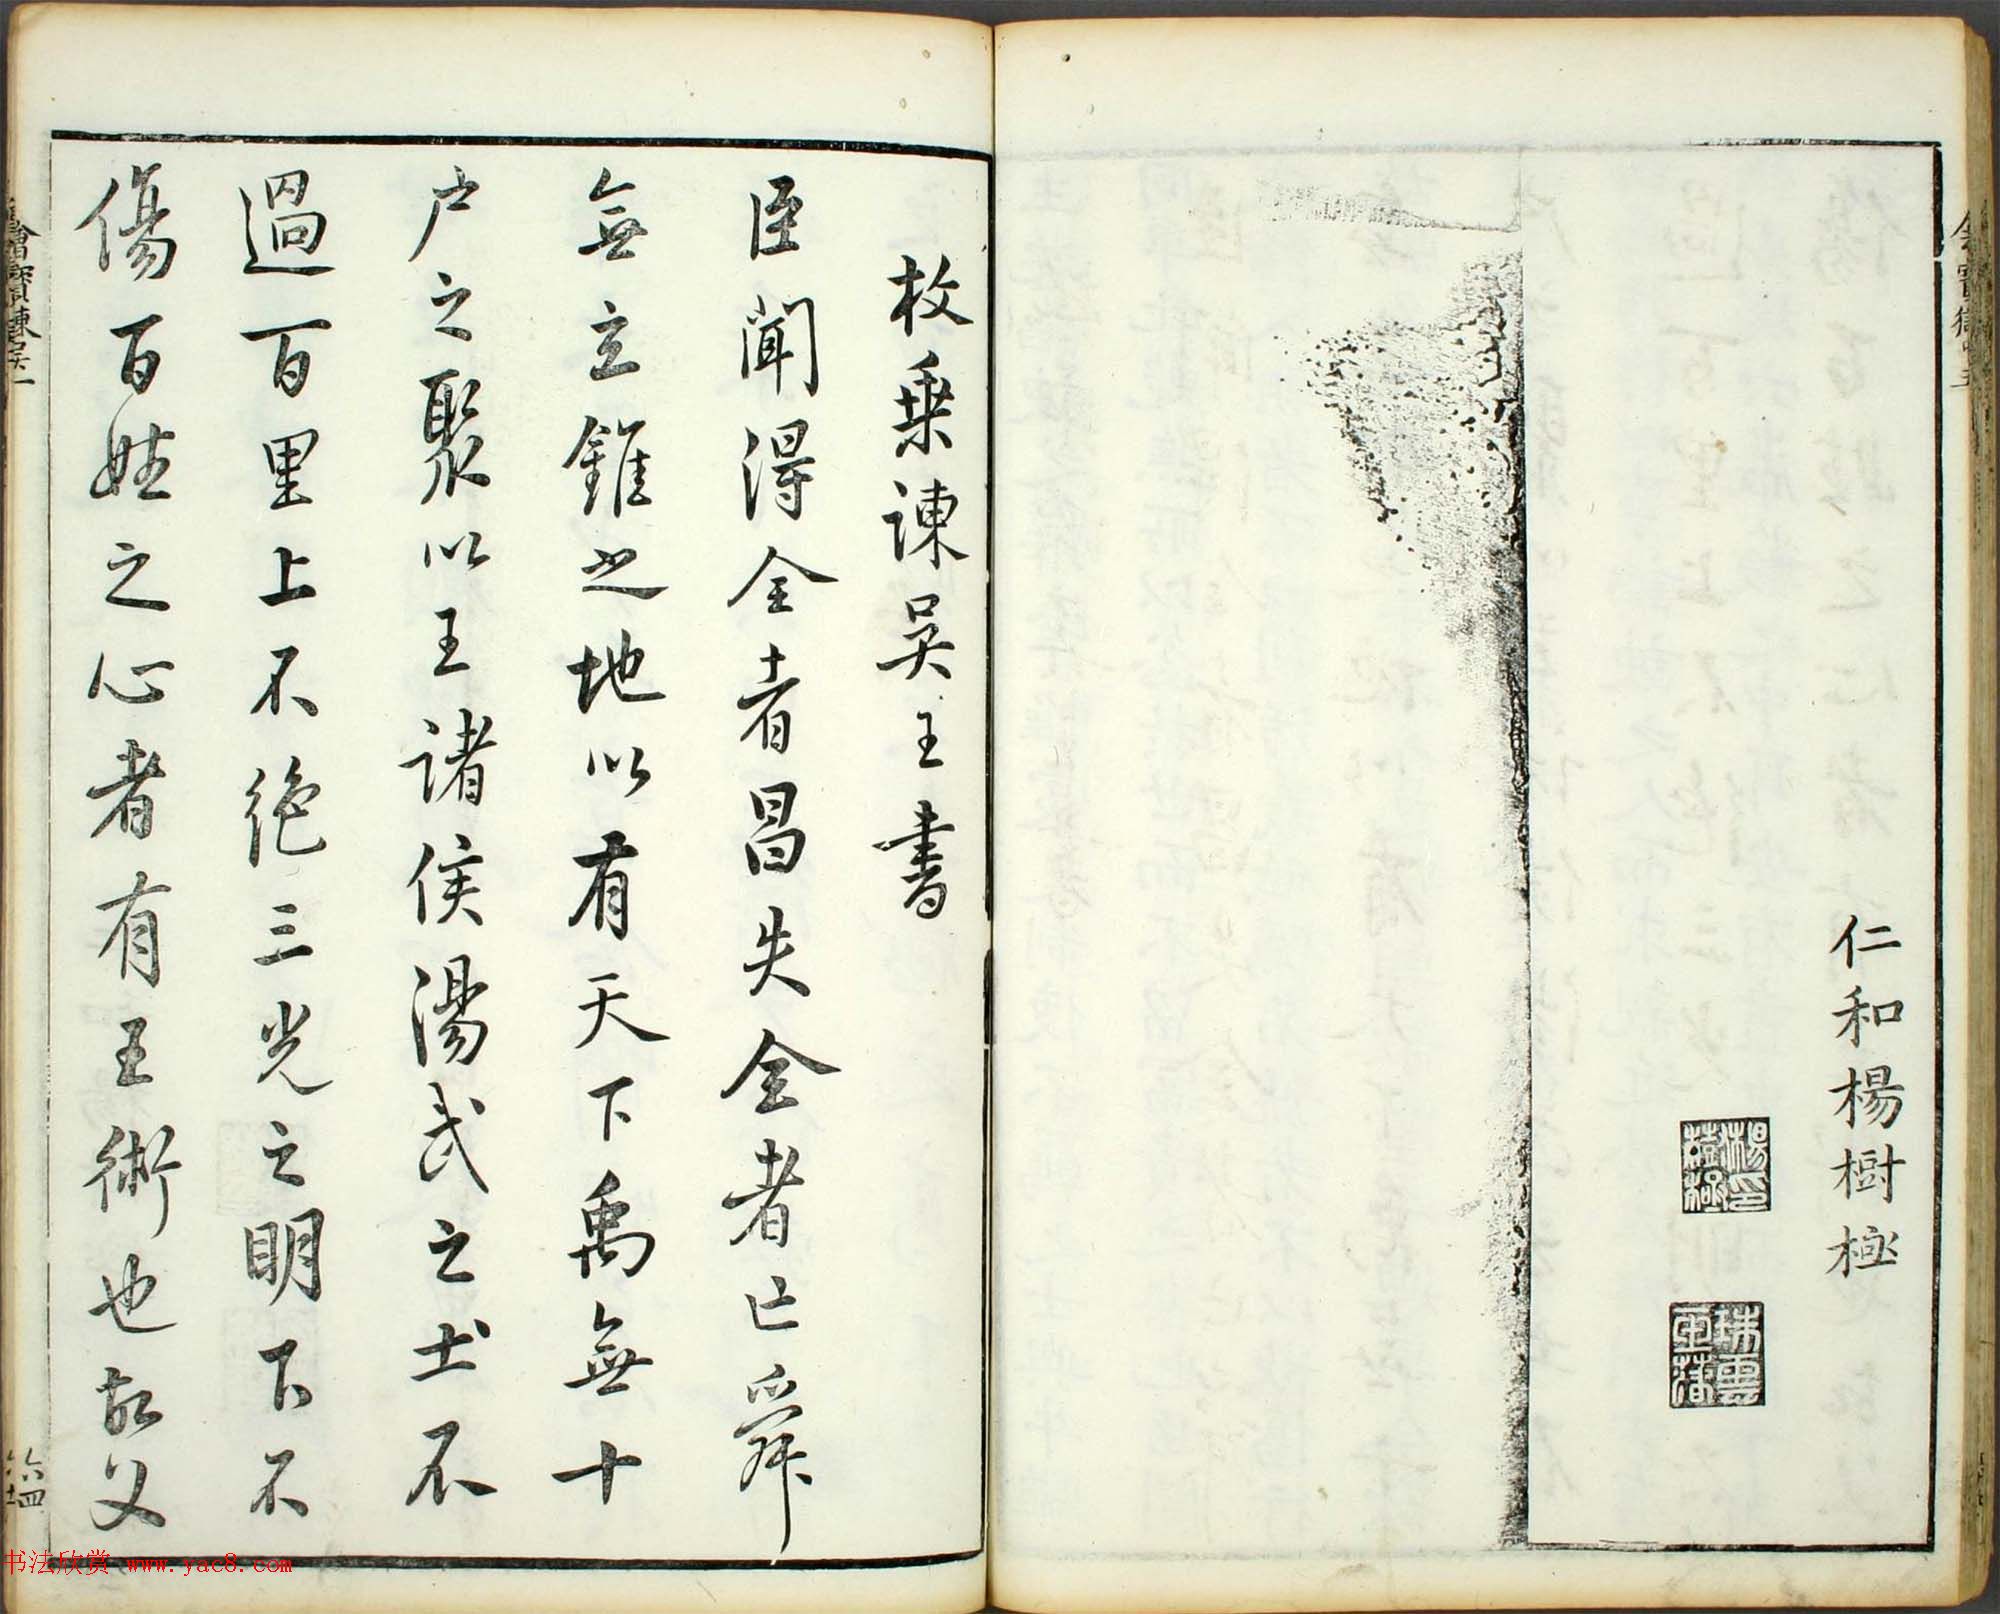 仁和楊樹極
枚乗諌吴王書
臣聞得全者昌失全者亡舜
無立錐之地以有天下禹無十
户之聚以王諸侯湯武之士不
過百里上不絶三光之明下不
傷百姓之心者有王術也故父
六四
书法欣赏 www.yac8.com